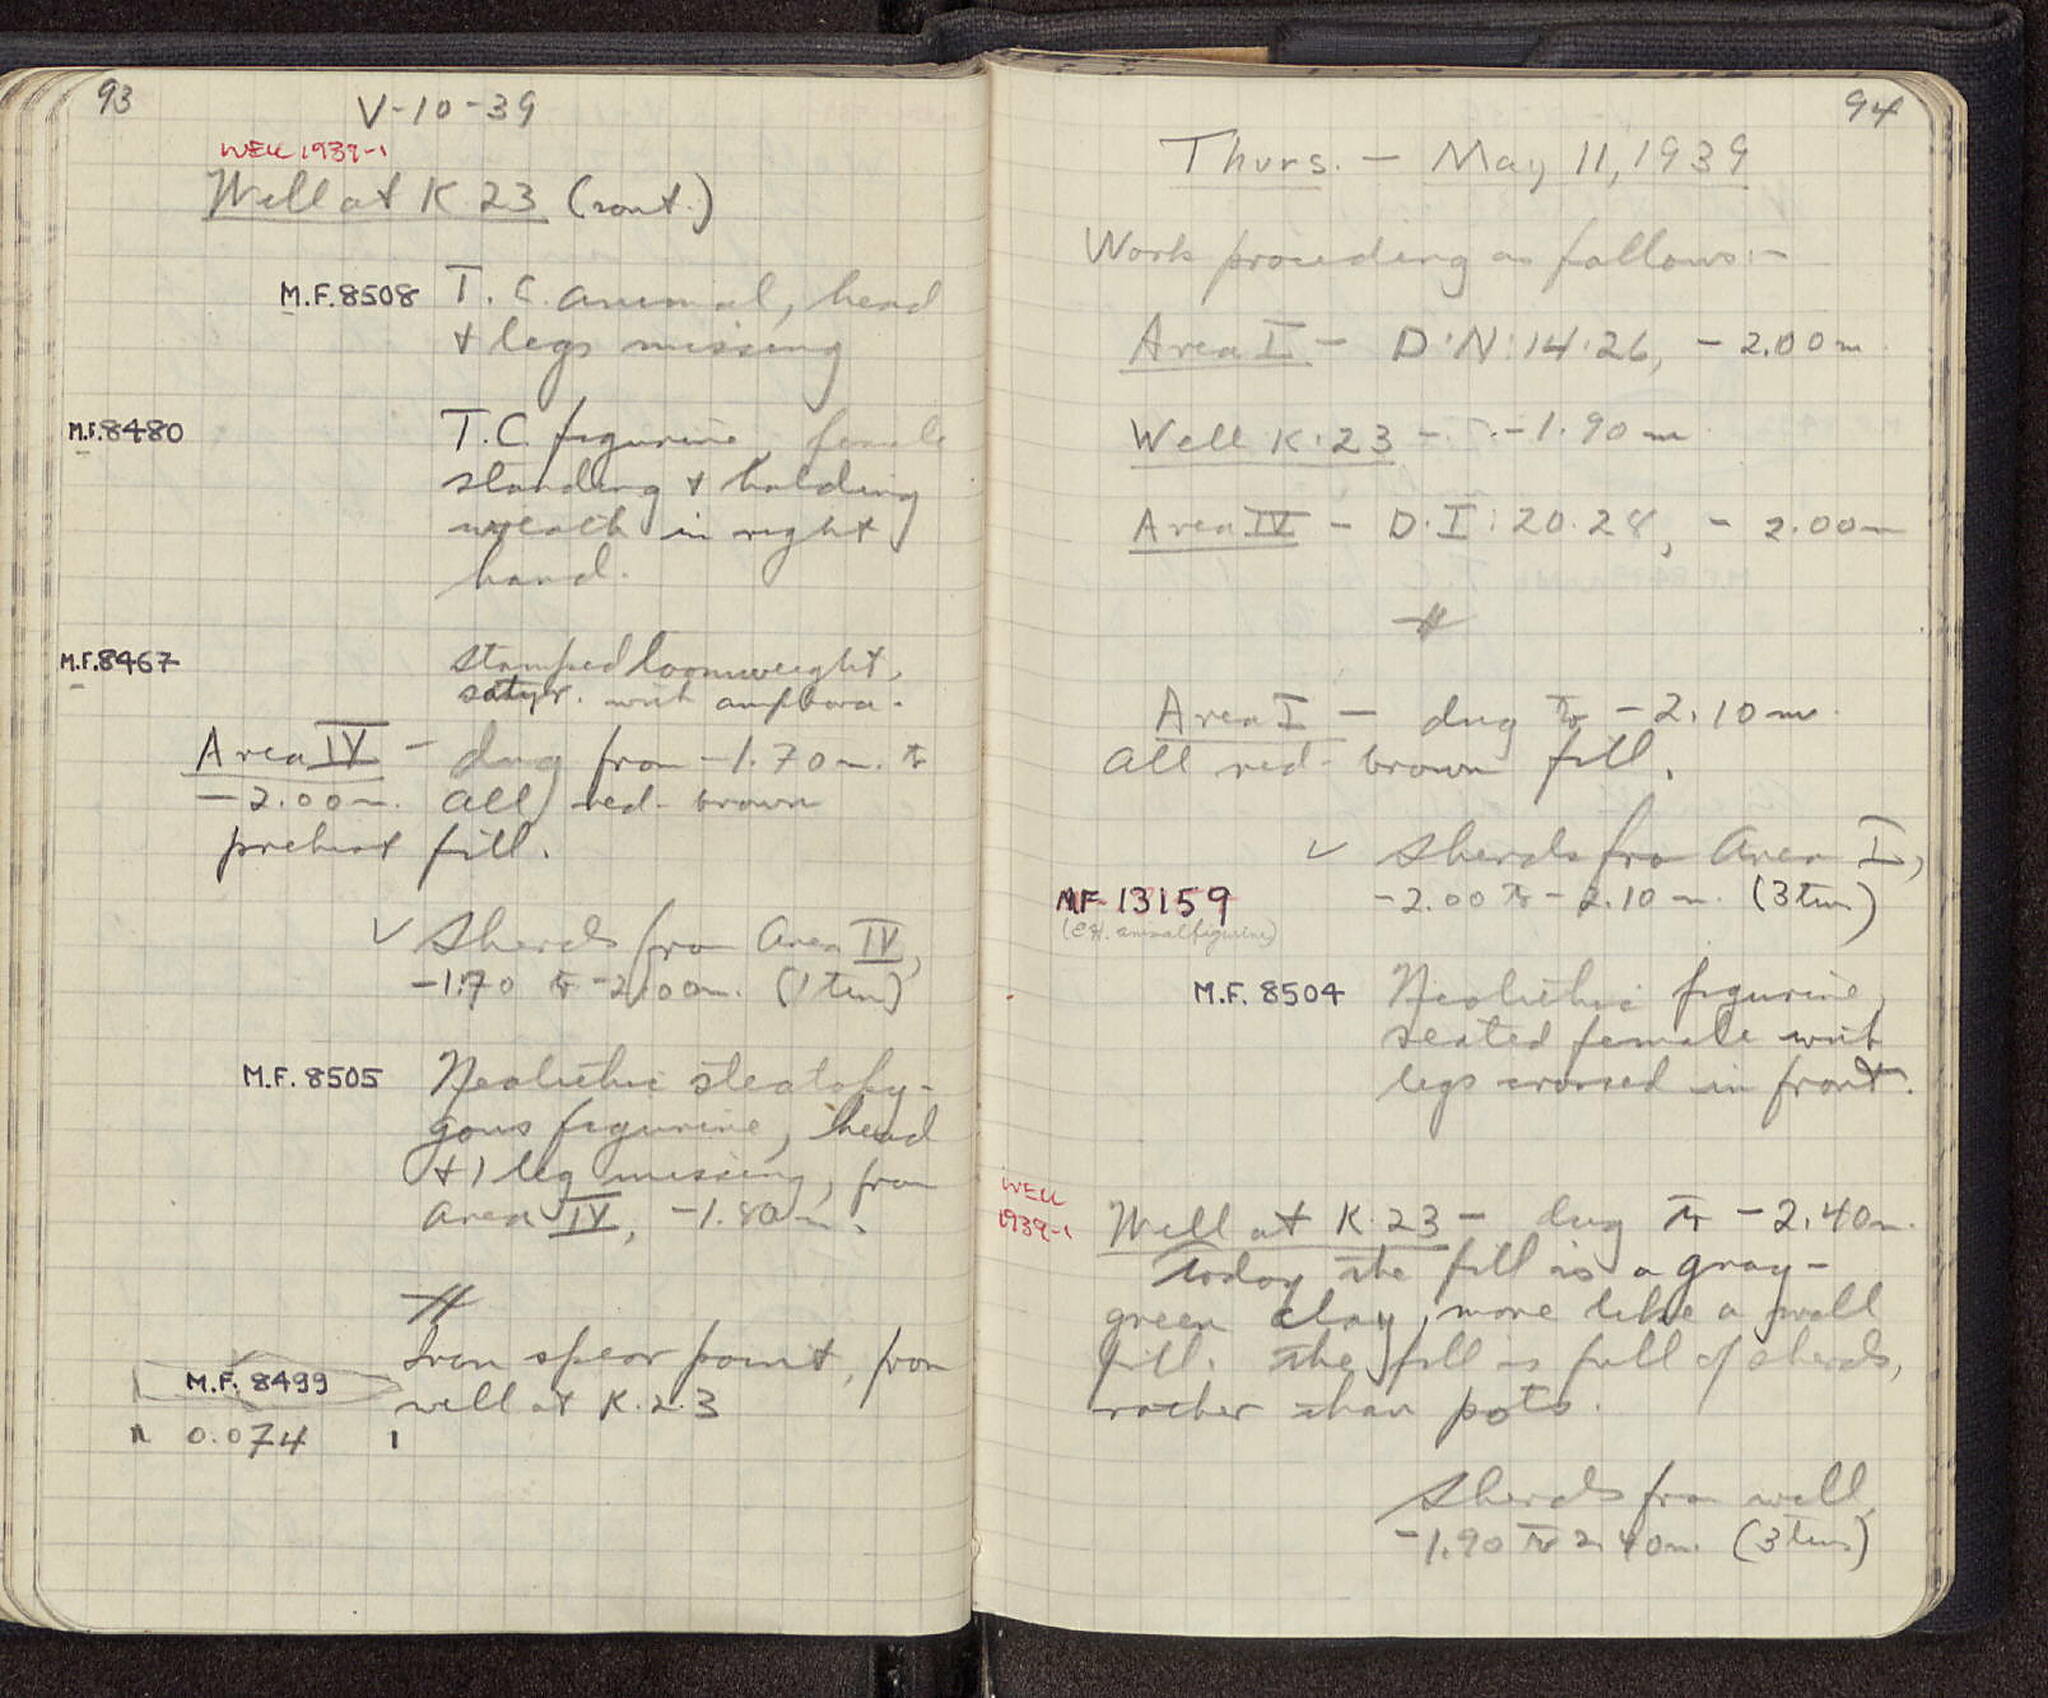 93
V-10-39
WELL 1939-1
Well at K.23 (cont.)
M.F.8508 T.C. animal, head
+ legs missing
M.F.8480 T.C. figurine, female
standing + holding
wreath in right
hand.
M.F.8467 stamped loomweight,
satyr. with amphora.
Area IV - dug from -1.70m. to
-2.00m. All red-brown
prehist fill.
✓ Sherds from Area IV,
-1.70 to -2.00m. (1 tin)
M.F. 8505 Neolithic steatopy-
gous figurine, head
+ 1 leg missing, from
Area IV, -1.80m.
Iron spear point, from
M.F. 8499 well at K.23
0.074
94
Thurs. - May 11, 1939
Work proceeding as follows:-
Area I - D:N:14:26, -2.00m.
Well K:23 - -1.90m.
Area IV - D:I:20.28, - 2.00m
Area I - dug to -2.10m.
All red-brown fill.
✓ Sherds from Area I,
MF-13159 -2.00 to -2.10m. (3 tins)
(animal figurine)
M.F. 8504 Neolithic figurine,
seated female with
legs crossed in front.
WELL
1939-1
Well at K.23 - dug to -2.40m.
Today the fill is a gray-
green clay, more like a well
fill. The fill is full of sherds,
rather than pots.
Sherds from well,
-1.90 to 2.40m. (3 tins)